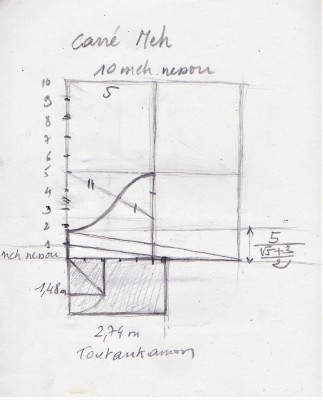 Carré Meh
10 meh nesou
10
5
9
8
7
6
5
4
3
2
1
meh nesou
5
√5+3
2
1,48m
2,74 m
Toutankamon